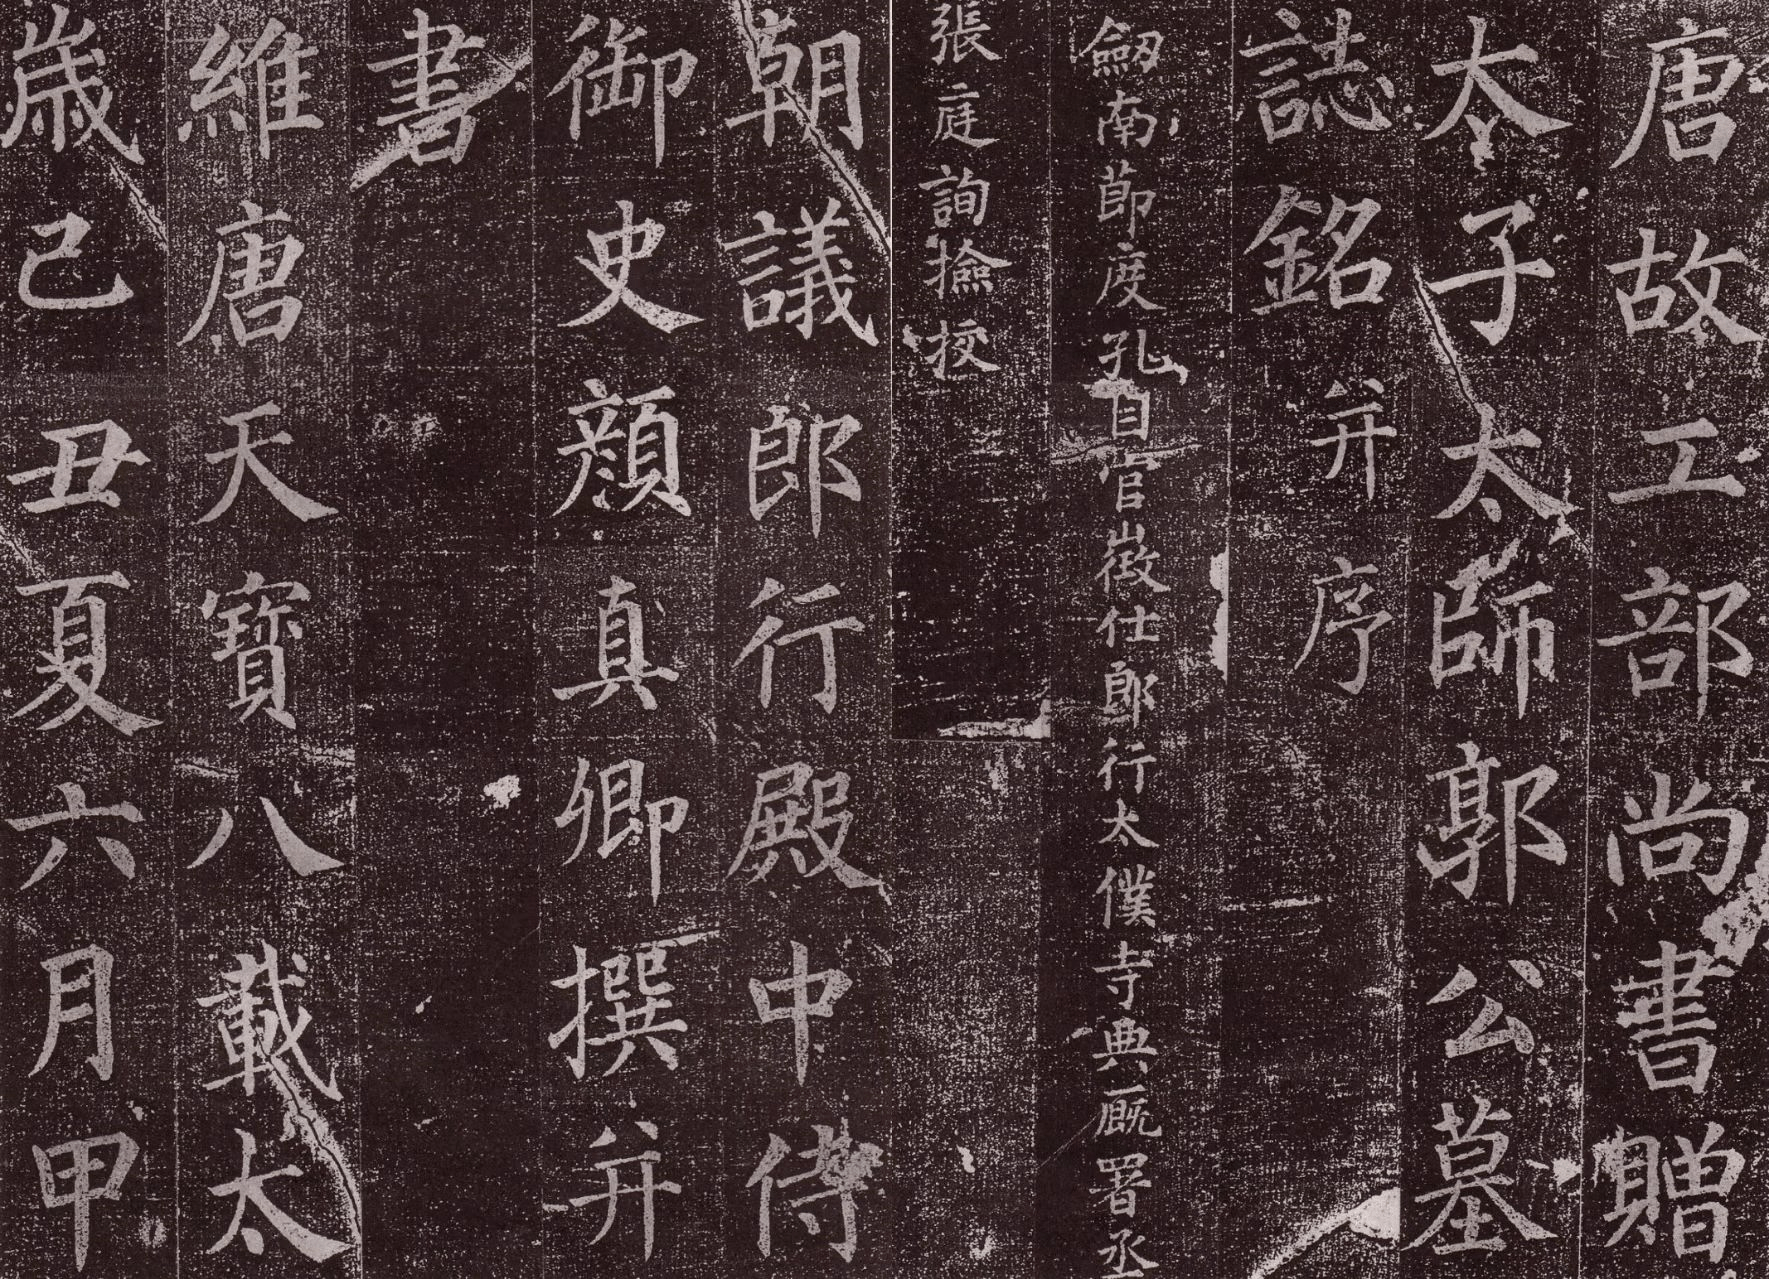 唐故工部尚書贈
太子太師郭公墓
誌銘并序
劔南節度孔目官徵仕郎行太僕寺典厩署丞
張庭詢撿挍
朝議郎行殿中侍
御史顏真卿撰并
書
維唐天寶八載太
歲己丑夏六月甲